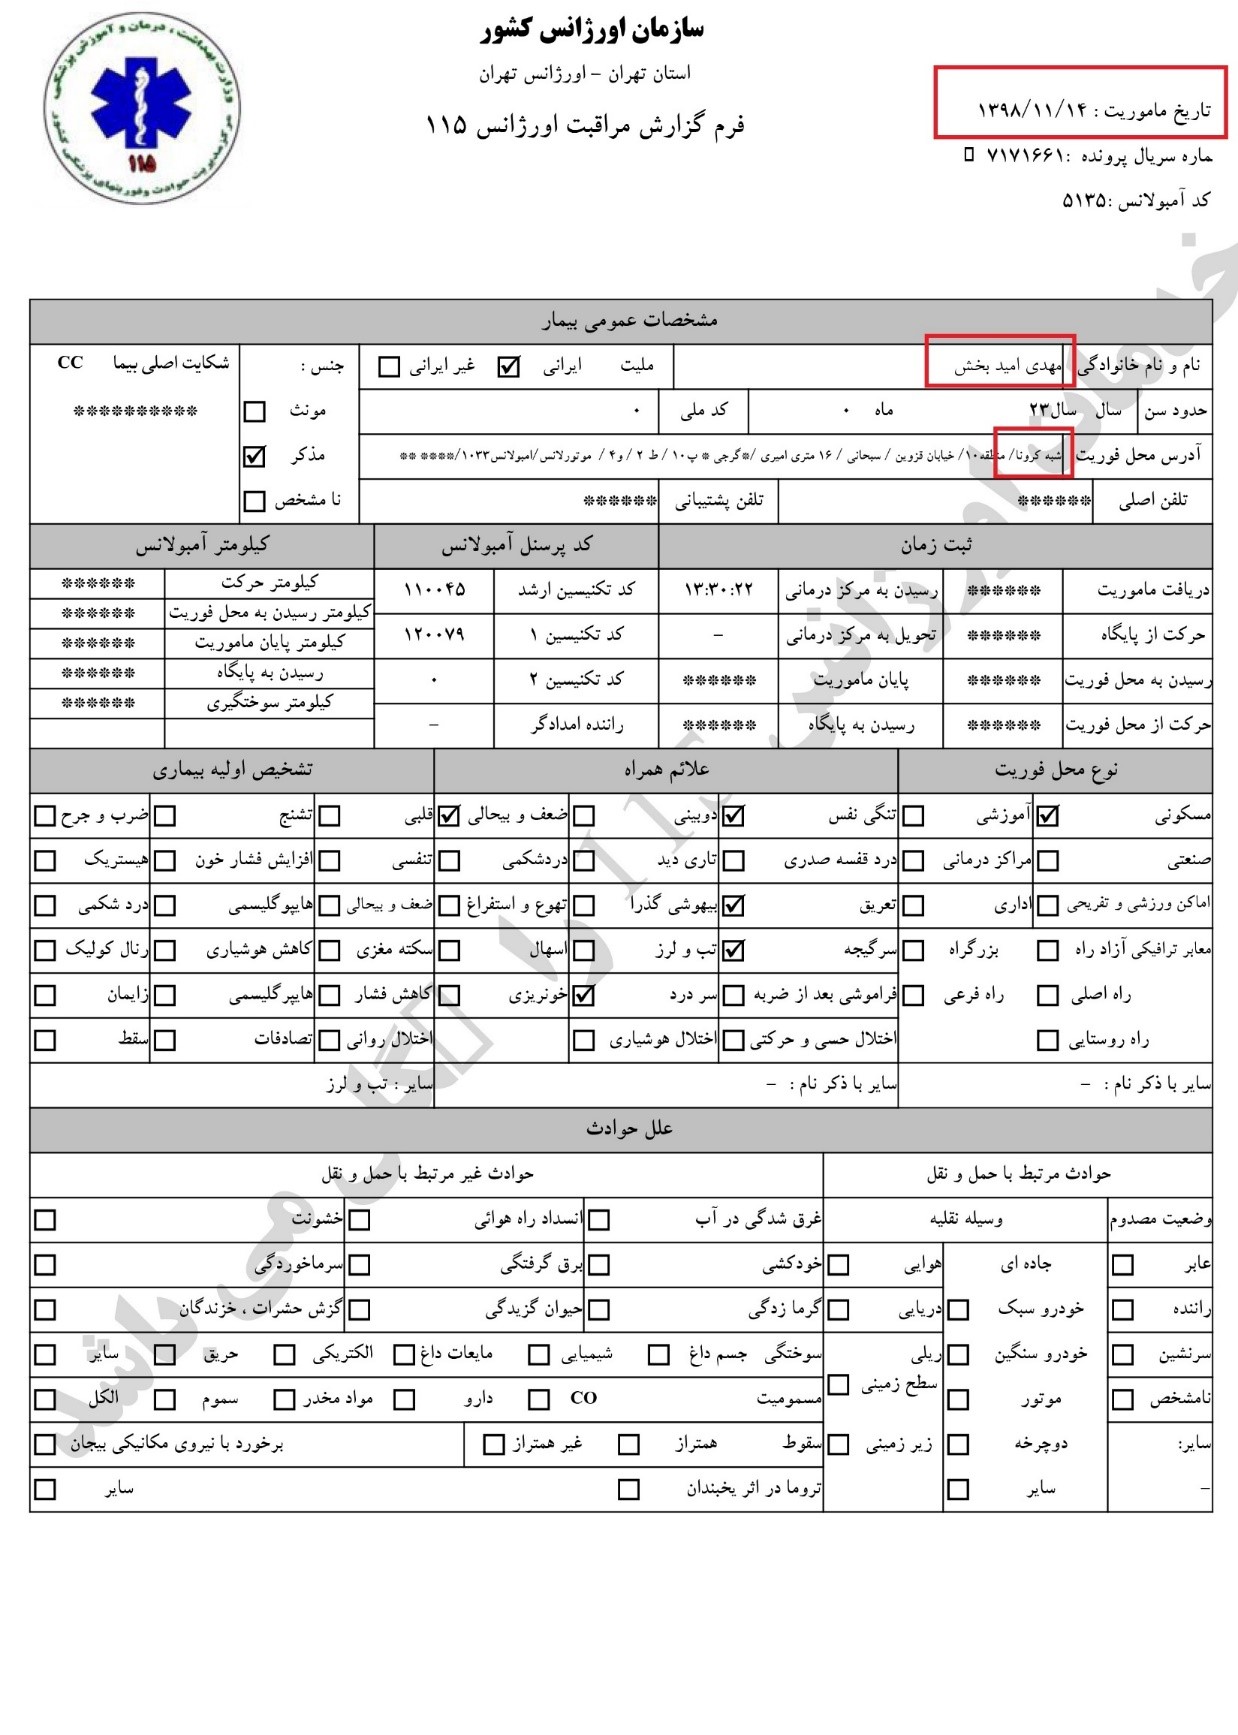 سازمان اورژانس کشور
استان تهران - اورژانس تهران
فرم گزارش مراقبت اورژانس ۱۱۵
وزارت بهداشت ، درمان و آموزش پزشکی
مرکز مدیریت حوادث و فوریتهای پزشکی کشور
۱۱۵
تاریخ ماموریت : ۱۳۹۸/۱۱/۱۴
ماره سریال پرونده :۷۱۷۱۶۶۱
کد آمبولانس :۵۱۳۵
مشخصات عمومی بیمار
نام و نام خانوادگی مهدی امید بخش ملیت ایرانی غیر ایرانی جنس : شکایت اصلی بیما CC
حدود سن سال سال۲۳ ماه ۰ کد ملی ۰ مونث **********
آدرس محل فوریت شبه کرونا/ منطقه۱۰/ خیابان قزوین / سبحانی / ۱۶ متری امیری /*گرجی * پ۱۰ / ط ۲ / و۴ / موتورلانس/امبولانس۱۰۳۳/**** ** مذکر
تلفن اصلی ****** تلفن پشتیبانی ****** نا مشخص
ثبت زمان کد پرسنل آمبولانس کیلومتر آمبولانس
دریافت ماموریت ****** رسیدن به مرکز درمانی ۱۳:۳۰:۲۲ کد تکنیسین ارشد ۱۱۰۰۴۵ کیلومتر حرکت ******
کیلومتر رسیدن به محل فوریت ******
حرکت از پایگاه ****** تحویل به مرکز درمانی - کد تکنیسین ۱ ۱۲۰۰۷۹ کیلومتر پایان ماموریت ******
رسیدن به محل فوریت ****** پایان ماموریت ****** کد تکنیسین ۲ ۰ رسیدن به پایگاه ******
کیلومتر سوختگیری ******
حرکت از محل فوریت ****** رسیدن به پایگاه ****** راننده امدادگر -
نوع محل فوریت علائم همراه تشخیص اولیه بیماری
مسکونی آموزشی تنگی نفس دوبینی ضعف و بیحالی قلبی تشنج ضرب و جرح
صنعتی مراکز درمانی درد قفسه صدری تاری دید دردشکمی تنفسی افزایش فشار خون هیستریک
اماکن ورزشی و تفریحی اداری تعریق بیهوشی گذرا تهوع و استفراغ ضعف و بیحالی هایپوگلیسمی درد شکمی
معابر ترافیکی آزاد راه بزرگراه سرگیجه تب و لرز اسهال سکته مغزی کاهش هوشیاری رنال کولیک
راه اصلی راه فرعی فراموشی بعد از ضربه سر درد خونریزی کاهش فشار هایپرگلیسمی زایمان
راه روستایی اختلال حسی و حرکتی اختلال هوشیاری اختلال روانی تصادفات سقط
سایر با ذکر نام : - سایر با ذکر نام : - سایر : تب و لرز
علل حوادث
حوادث مرتبط با حمل و نقل حوادث غیر مرتبط با حمل و نقل
وضعیت مصدوم وسیله نقلیه غرق شدگی در آب انسداد راه هوائی خشونت
عابر جاده ای هوایی خودکشی برق گرفتگی سرماخوردگی
راننده خودرو سبک دریایی گرما زدگی حیوان گزیدگی گزش حشرات ، خزندگان
سرنشین خودرو سنگین ریلی سوختگی جسم داغ شیمیایی مایعات داغ الکتریکی حریق سایر
سطح زمینی
نامشخص موتور مسمومیت CO دارو مواد مخدر سموم الکل
سایر: دوچرخه زیر زمینی سقوط همتراز غیر همتراز برخورد با نیروی مکانیکی بیجان
- سایر تروما در اثر یخبندان سایر